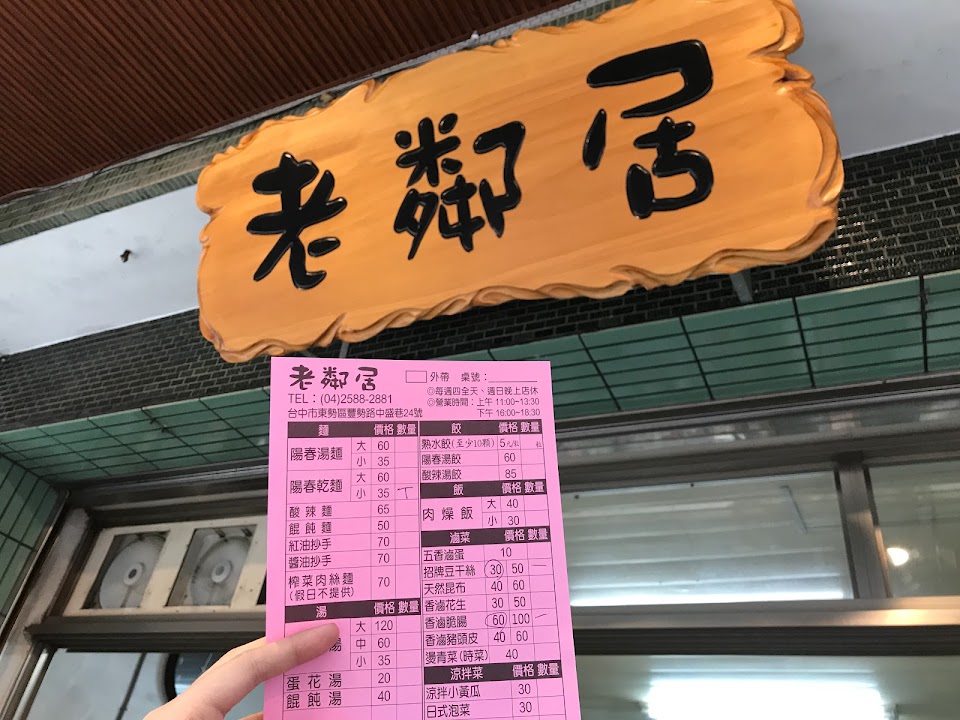 老鄰居
老鄰居 外帶 桌號：
TEL：(04)2588-2881
台中市東勢區豐勢路中盛巷24號
◎每週四全天、週日晚上店休
◎營業時間：上午 11:00~13:30
下午 16:00~18:30
麵 價格 數量
陽春湯麵 大 60
小 35
陽春乾麵 大 60
小 35 一
酸辣麵 65
餛飩麵 50
紅油抄手 70
醬油抄手 70
榨菜肉絲麵 70
(假日不提供)
湯 價格 數量
湯 大 120
中 60
小 35
蛋花湯 20
餛飩湯 40
餃 價格 數量
熟水餃(至少10顆) 5元/粒 粒
陽春湯餃 60
酸辣湯餃 85
飯 價格 數量
肉燥飯 大 40
小 30
滷菜 價格 數量
五香滷蛋 10
招牌豆干絲 30 50 一
天然昆布 40 60
香滷花生 30 50
香滷脆腸 60 100 一
香滷豬頭皮 40 60
燙青菜(時菜) 40
涼拌菜 價格 數量
涼拌小黃瓜 30
日式泡菜 30